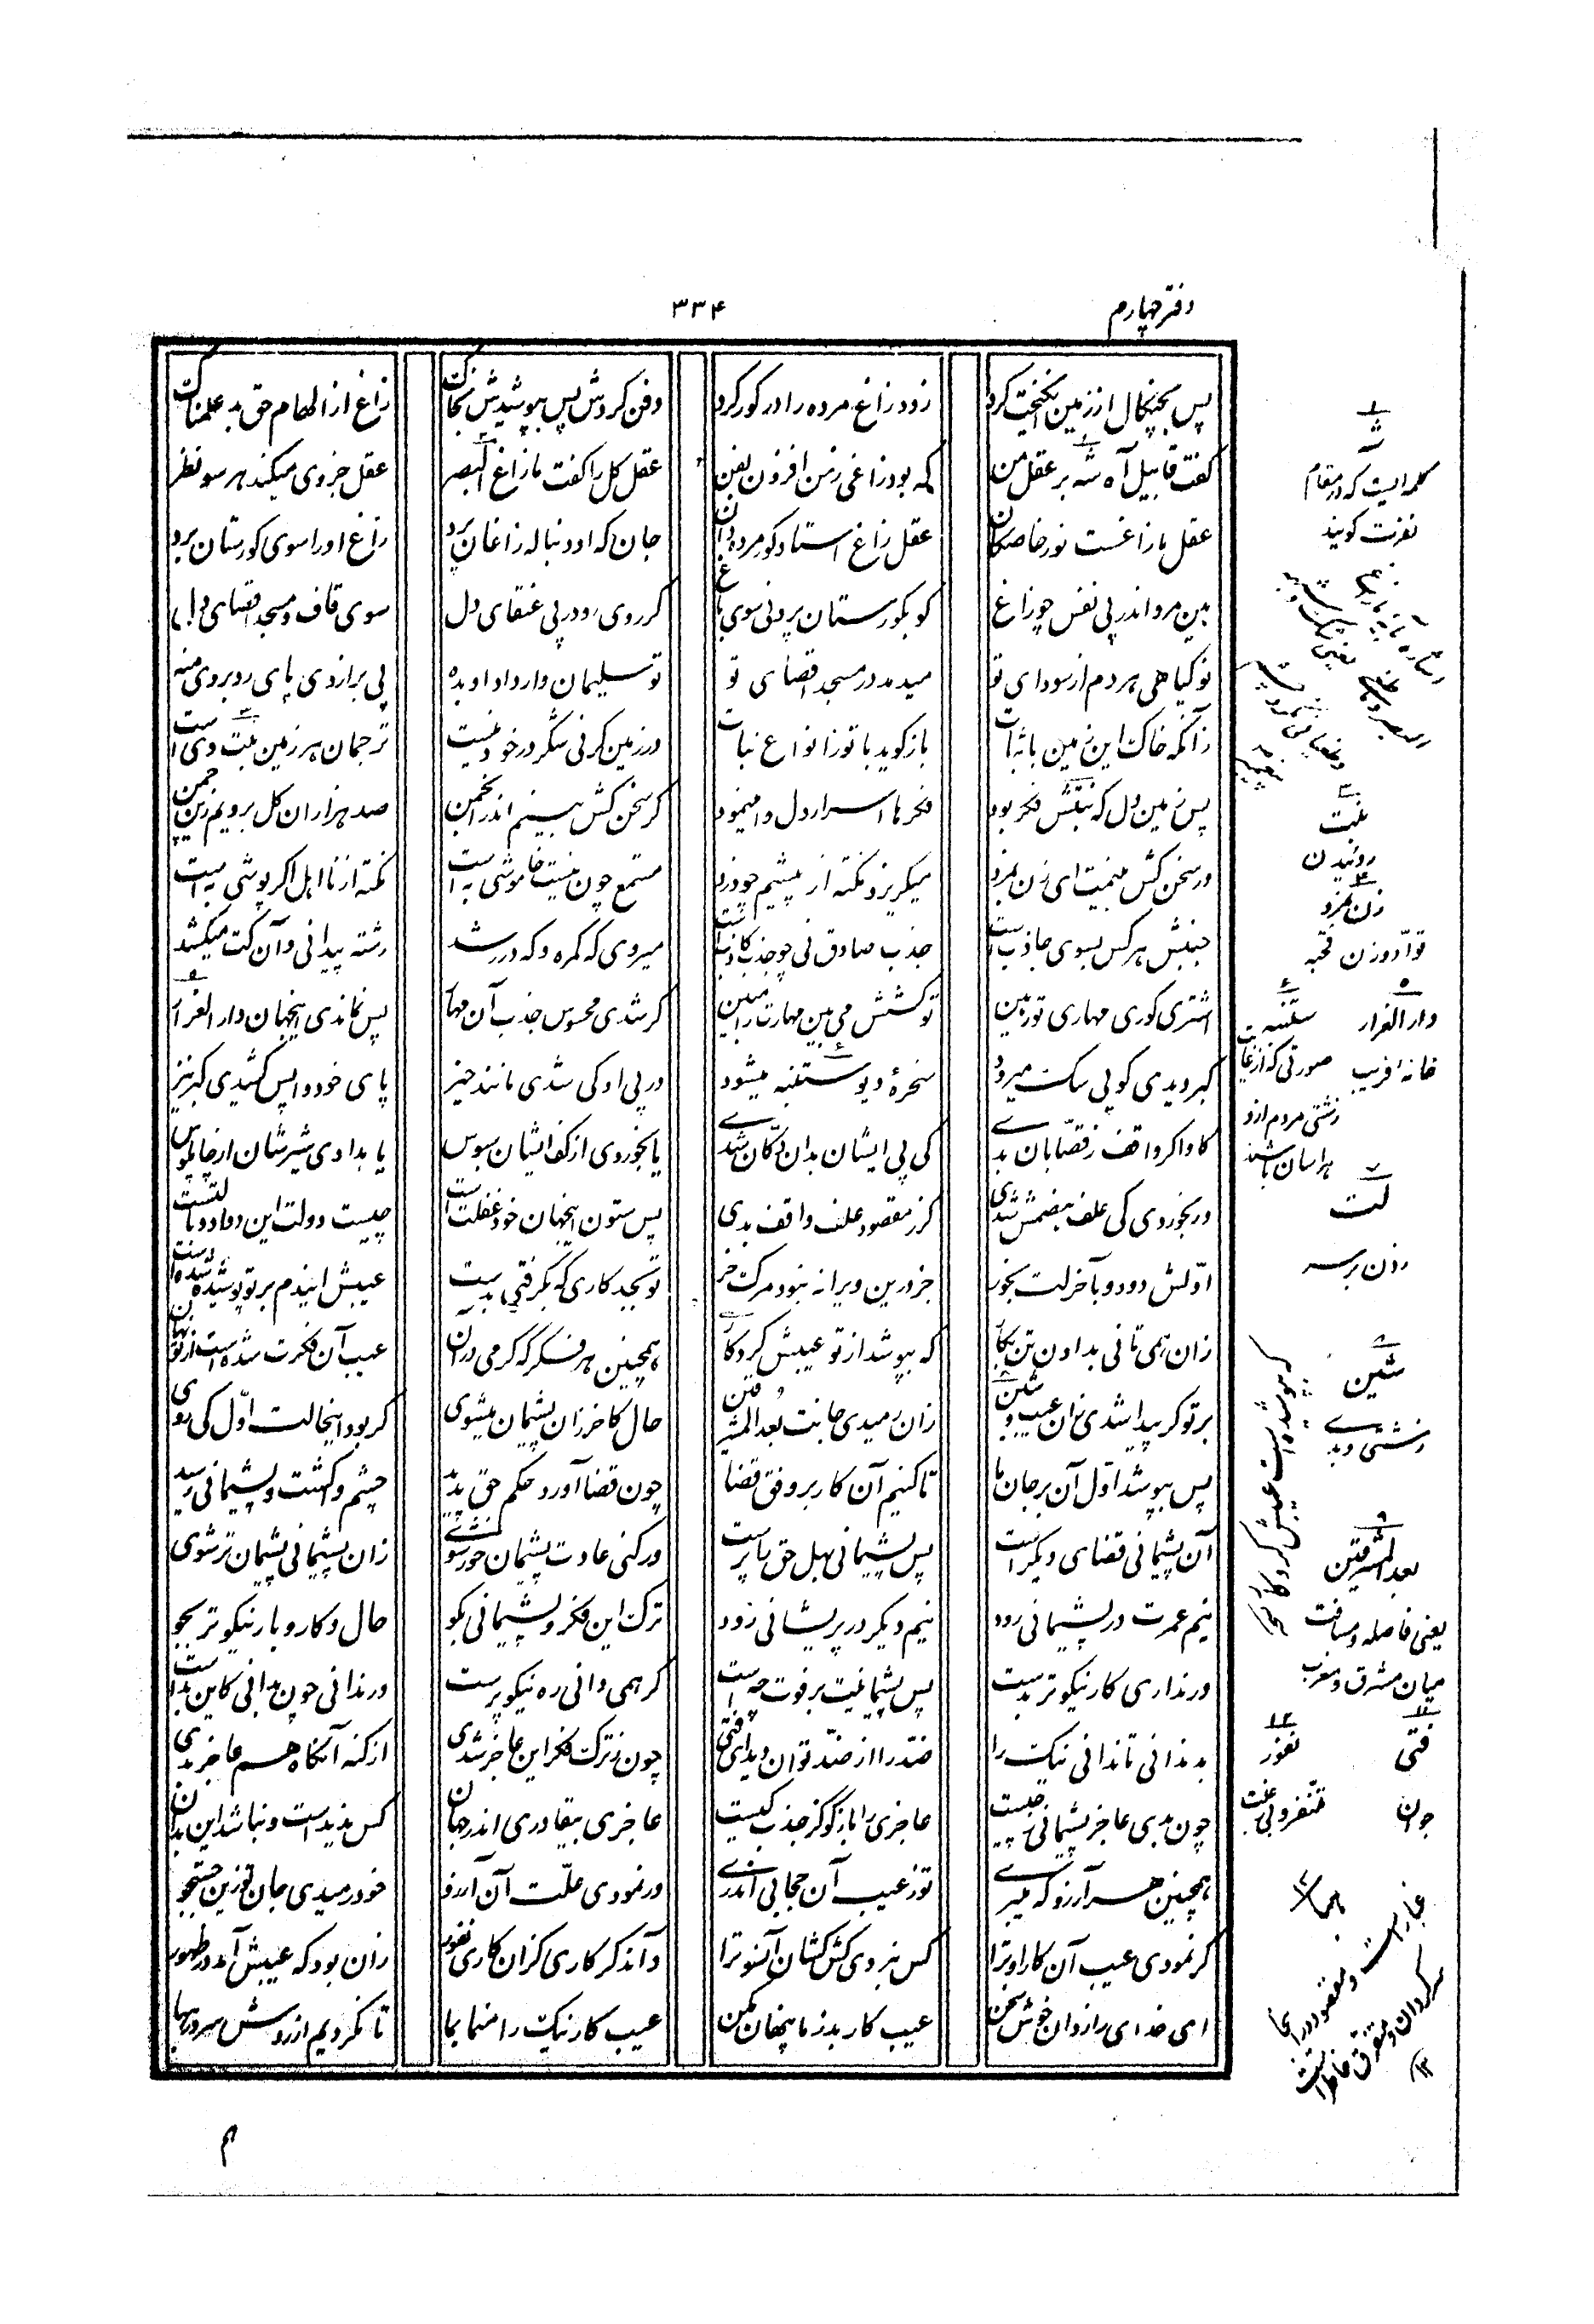 دفتر چهارم ۳۳۴
پس بچنگال از زمین انگیخت گرد زود زاغ مرده را در گور کرد دفن کردش پس بپوشیدش بخاک زاغ از الهام حق بد علمناک
گفت قابیل آه شه بر عقل من که بود زاغی زمن افزون بفن عقل کل را گفت ما زاغ البصر عقل جزوی میکند هر سو نظر
عقل ما زاغست نور خاصگان عقل زاغ استاد گور مردگان جان که او دنباله زاغان پرد زاغ او را سوی گورستان برد
هین مرو اندر پی نفس چو زاغ کو بگورستان برد نی سوی باغ گر روی رو در پی عنقای دل سوی قاف و مسجد اقصای دل
نو گیاهی هر دم از سودای تو میدمد در مسجد اقصای تو تو سلیمان وار داد او بده پی بر از وی پای رد بر وی منه
زآنکه خاک این زمین باثبات باز گوید با تو انواع نبات در زمین گر نی شکر ور خود نیست ترجمان هر زمین نبت ویست
پس زمین دل که نبتش فکر بود فکرها اسرار دل وامینمود گر سخن کش بینم اندر انجمن صد هزاران گل برویم زین چمن
ور سخن کش بینمت ای زن بمزد میگریزد نکته از پیشم چو دزد مستمع چون نیست خاموشی به است نکته از نااهل اگر پوشی به است
جنبش هر کس بسوی جاذبست جذب صادق نی چو جذب کاذبست میروی گه گمره و گه در رشد رشته پیدا نی و آن کت میکشد
اشتری کوری مهاری تو رهین تو کشش می بین مهارت را مبین گر شدی محسوس جذب آن مهار پس نماندی اینجهان دار الغرار
گبر دیدی کو پی سگ میرود سخرهٔ دیو ستنبه میشود در پی او کی شدی مانند حیز پای خود واپس کشیدی گبر نیز
گاو اگر واقف ز قصّابان بدی کی پی ایشان بدان دکّان شدی یا بخوردی از کف ایشان سبوس یا بدادی شیرشان از چاپلوس
ور بخوردی کی علف هضمش شدی گر ز مقصود علف واقف بدی پس ستون اینجهان خود غفلت است چیست دولت این دوادو با لتست
اوّلش دو دو و بآخر لت بخور جز درین ویرانه نبود مرگ خر تو بجد کاری که بگرفتی بدست عیبش ایندم بر تو پوشیده شده است
زان همی تانی بدادن تن بکار که بپوشد از تو عیبش کردگار همچنین هر فکر که گرمی در آن عیب آن فکرت شده است از تو نهان
بر تو گر پیدا شدی زان عیب و شین زان رمیدی جانت بعد المشرقین حال کاخر زان پشیمان میشوی گر بود اینحالت اوّل کی دوی
پس بپوشد اوّل آن بر جان ما تا کنیم آن کار بر وفق قضا چون قضا آورد حکم حق پدید چشم وا گشت و پشیمانی رسید
آن پشیمانی قضای دیگر است پس پشیمانی بهل حق را پرست ور کنی عادت پشیمان خور شوی زان پشیمانی پشیمان تر شوی
نیم عمرت در پشیمانی رود نیم دیگر در پریشانی رود ترک این فکر و پشیمانی بگو حال و کار و یار نیکوتر بجو
ور نداری کار نیکوتر بدست پس پشیمانیت بر فوت چه است گر همی دانی ره نیکو پرست ور ندانی چون بدانی کاین بدست
بد ندانی تا ندانی نیک را ضدّ را از ضدّ توان دید ای فتی چون ز ترک فکر این عاجز شدی از گنه آنگاه هم عاجز بدی
چون بدی عاجز پشیمانی ز چیست عاجزی را بازگو کز جذب کیست عاجزی بیقادری اندر جهان کس ندیدست و نباشد این بدان
همچنین هر آرزو که میبری تو ز عیب آن حجابی اندری ور نمودی علّت آن آرزو خود رمیدی جان تو زین جستجو
گر نمودی عیب آن کار او ترا کس نبردی کش کشان آنسو ترا و آند گر کاری کزان کاری نفور زان بود که عیبش آمد در ظهور
ای خدای رازدان خوش سخن عیب کار بد ز ما پنهان مکن عیب کار نیک را منما بما تا نگردیم از روش سرد و هبا
۱ شه
کلمه ایست که در مقام
نفرت گویند
۳
نبت
روئیدن
۴
زن بمزد
قوّاد و زن قحبه
۵
دار الغرار
خانه فریب
۶
ستنبه
صورتی که از غایت
زشتی مردم از و
هراسان باشند
۷
لت
زدن بر سر
۸
شین
زشتی و بدی
که پوشیده است عیبش کردگار
۹
بعد المشرقین
یعنی فاصله و مسافت
میان مشرق و مغرب
فتی
جوان
۱۲
نفور
هبا
غبار است و مقصود در اینجا
سرگردان و متفرق خاطر است
۱۲
هم